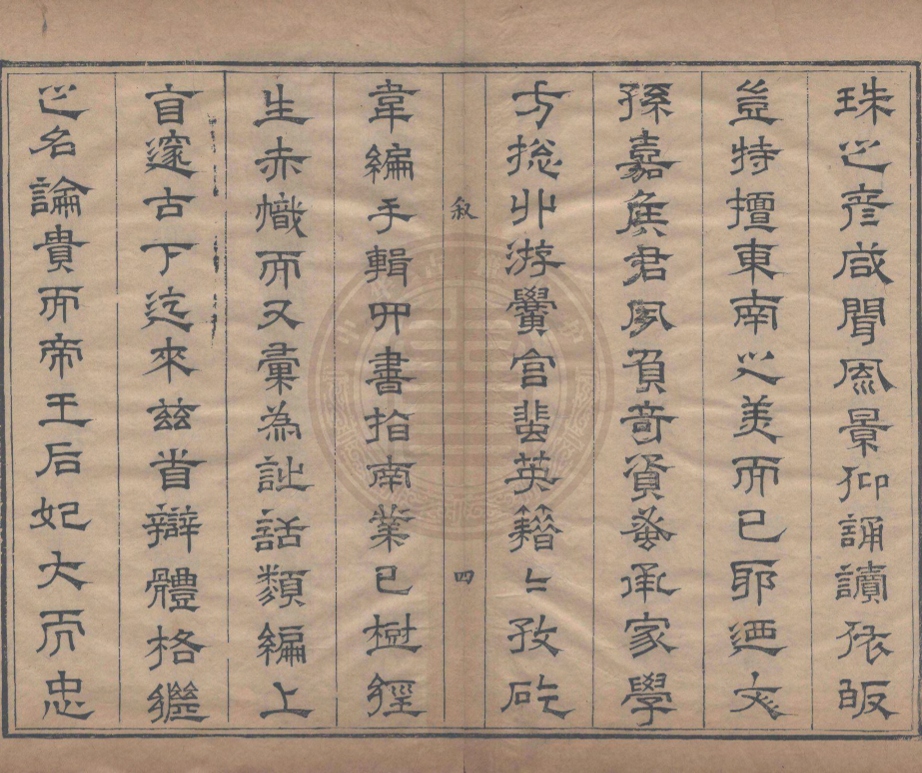 珠之彥咸聞風景仰誦讀依皈
豈特擅東南之美而已耶迺文
孫嘉侯君夙負奇資蚤承家學
方総丱游黌宫蜚英籍〻孜矻
叙
四
韋編手輯四書指南業已樹經
生赤幟而又彙為詩話類編上
自邃古下迄來茲首辯體格繼
之名論貴而帝王后妃大而忠